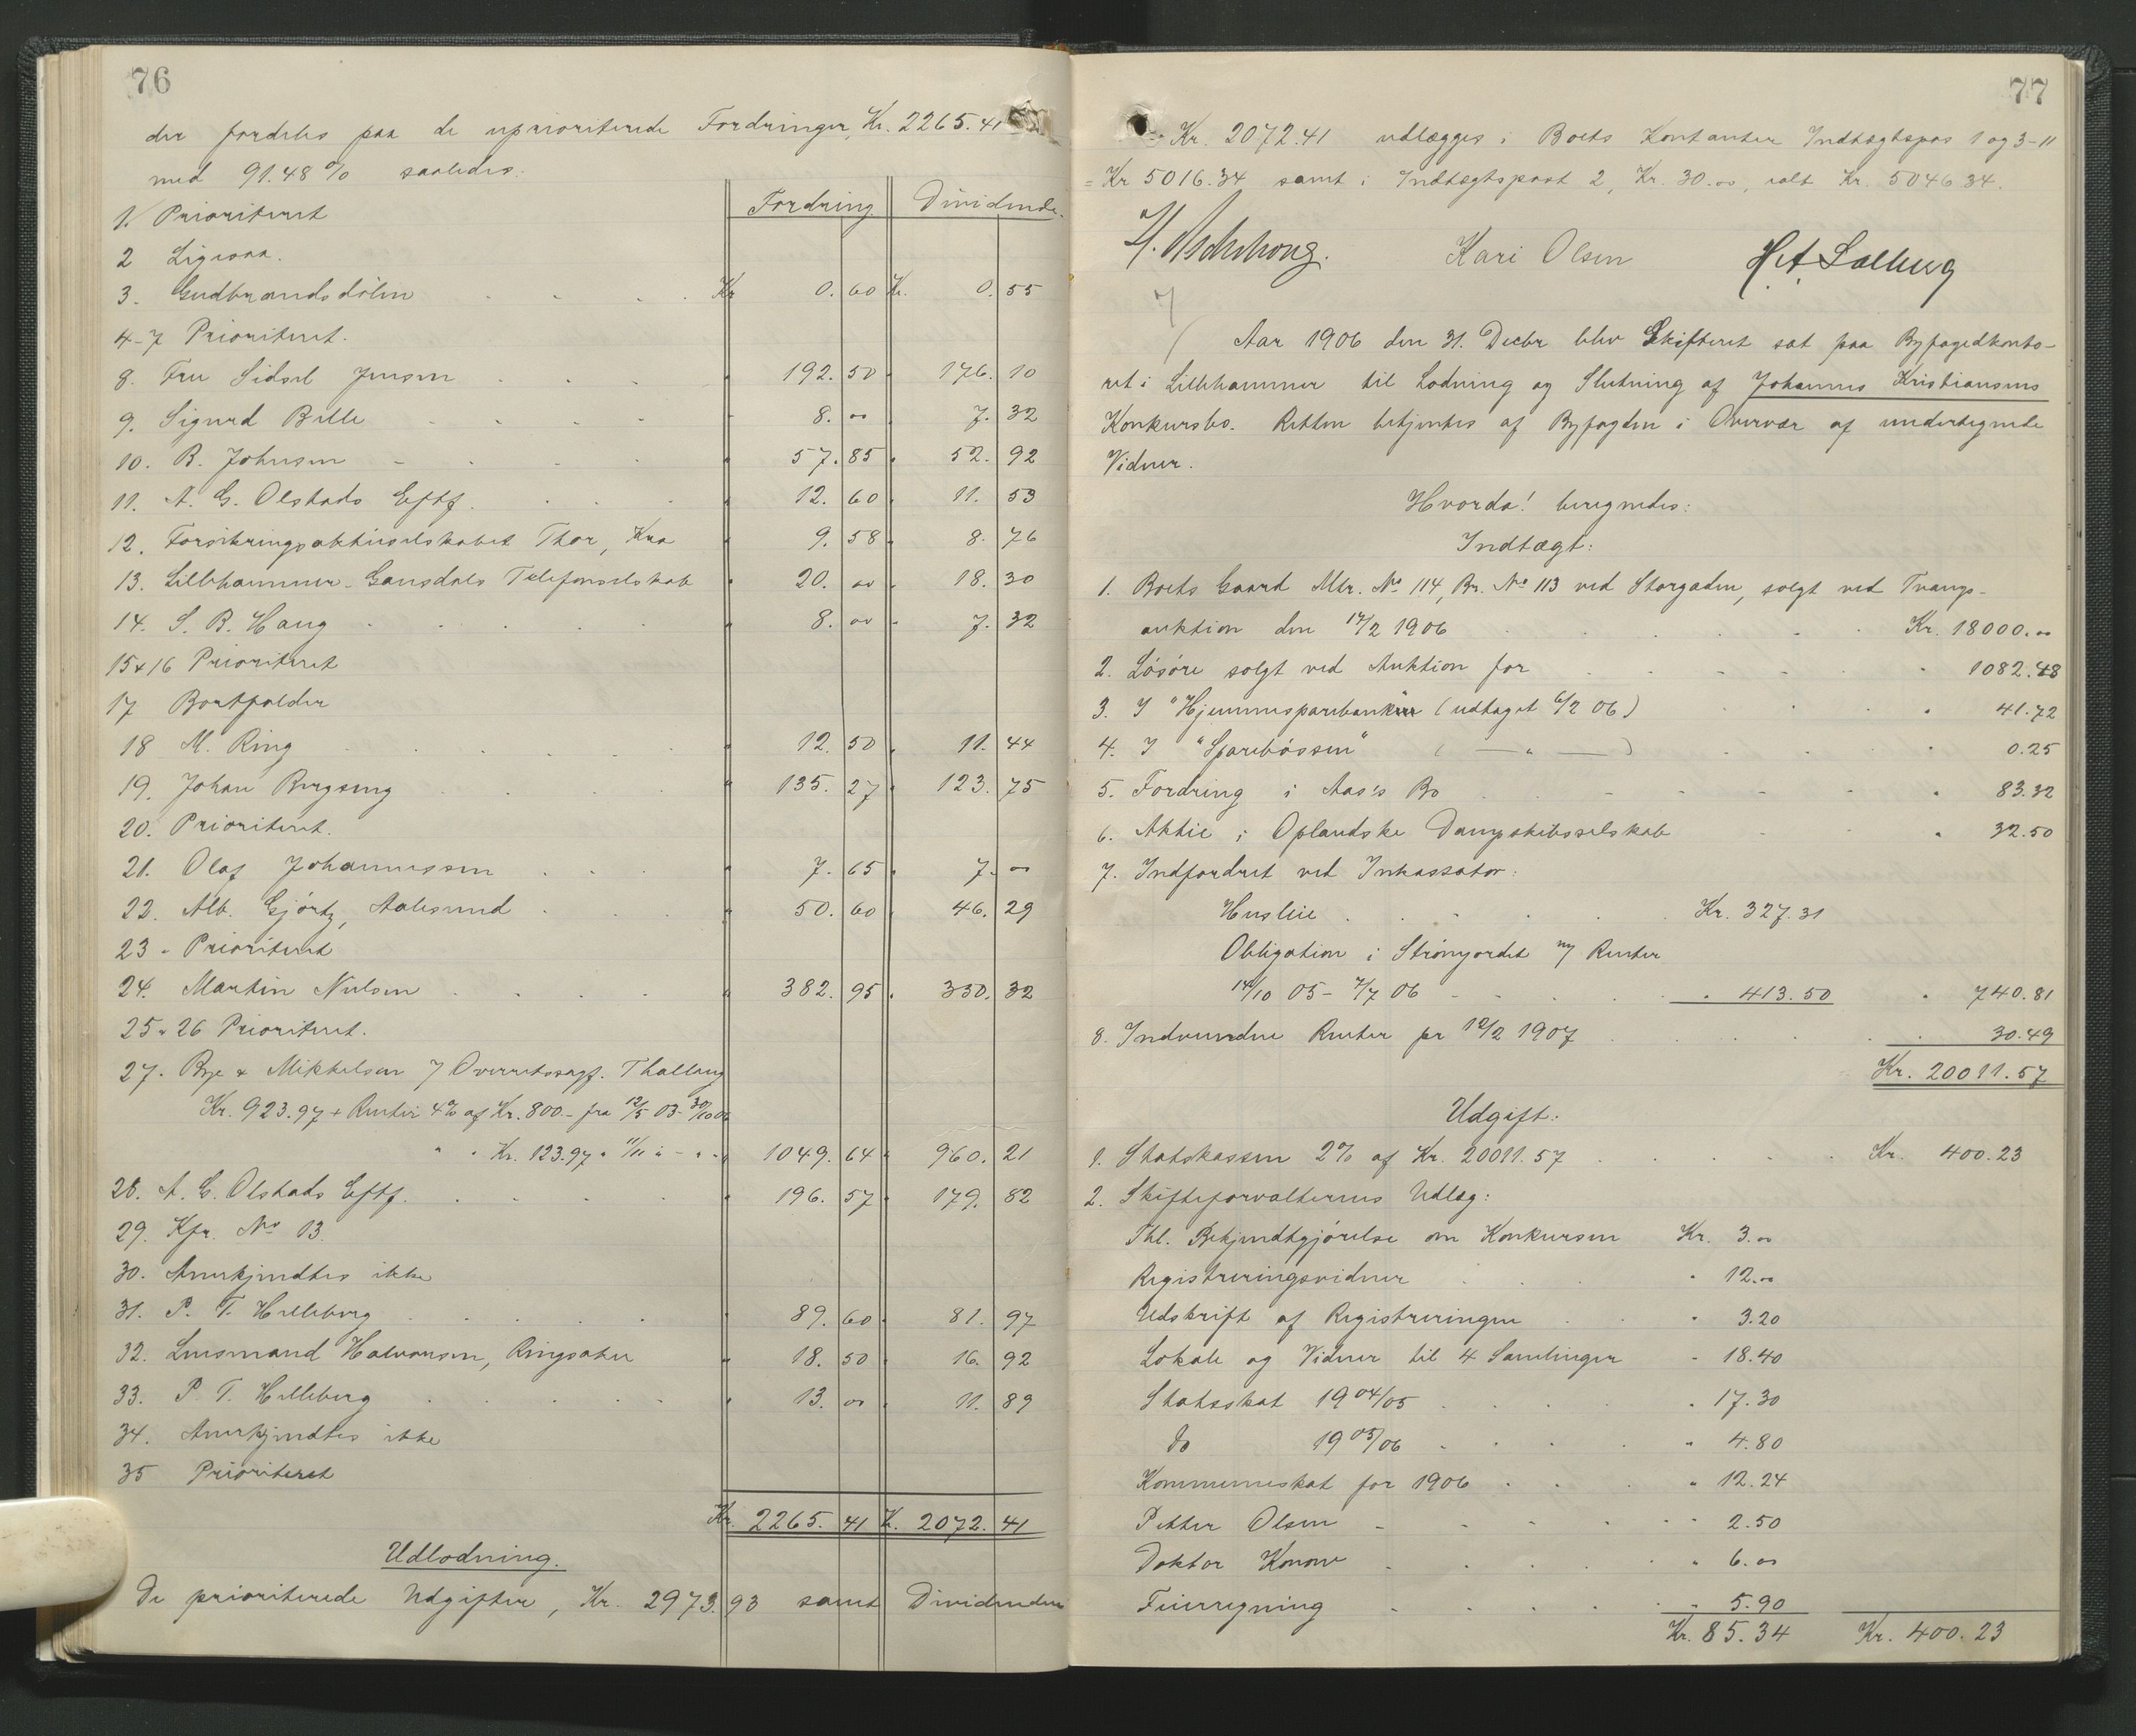 76
der fordeles paa de uprioriterede Fordringer, Kr. 2265.41
med 91.48% saaledes:
Fordring. Dividende.
1. Prioriteret
2 Ligesaa.
3. Gudbrandsdølen Kr 0.60 Kr. 0.55
4-7 Prioriteret.
8. Fru Sidsel Jensen 192.50 176.10
9. Sigurd Bille 8.00 7.32
10. B. Johnsen 57.85 52.92
11. A. G. Olstads Eftf. 12.60 11.53
12. Forsikringsaktieselskabet Thor, Kra 9.58 8.76
13. Lillehammer-Gausdals Telefonselskab 20.00 18.30
14. S. B. Haug 8.00 7.32
15 & 16 Prioriteret
17 Bortfalder
18 M. Ring 12.50 11.44
19. Johan Bergseng 135.27 123.75
20. Prioriteret.
21. Olaf Johannessen 7.65 7.00
22. Alb. Gjörtz, Aalesund 50.60 46.29
23 - Prioriteret
24. Martin Nielsen 382.95 350.32
25 " 26 Prioriteret.
27. Bye & Mikkelsen Overretssagf. Thallaug
Kr. 923.97 + Renter 4% af Kr. 800.- fra 12/5 03- 30/10 06
" " Kr. 123.97 " 11/11 " - " " 1049.64 960.21
28. A. G. Olstads Eftf. 196.57 179.82
29. Kfr. No 13.
30. Anerkjendtes ikke
31. P. T. Hilleborg 89.60 81.97
32. Lensmand Halvorsen, Ringsaker 18.50 16.92
33. P. T. Hilleborg 13.00 11.89
34. Anerkjendtes ikke
35 Prioriteret
Kr. 2265.41 Kr. 2072.41
Udlodning.
De prioriterede Udgifter, Kr. 2973.93 samt Dividenden
77
Kr. 2072.41 udlægges i Boets Kontanter Indtægtspos 1 og 3-11
= Kr 5016.34 samt i Indtægtspost 2, Kr. 30.00, ialt Kr. 5046.34.
Kari Olsen H. A. Solberg
Aar 1906 den 31. Decbr blev Skifteret sat paa Byfogedkonto-
ret i Lillehammer til Lodning og Slutning af Johannes Kristiansens
Konkursbo. Retten betjentes af Byfogden i Overvær af undertegnede
Vidner.
Hvorda! beregnedes:
Indtægt:
1. Boets Gaard Mtr. No 114, Br. No 113 ved Storgaden, solgt ved Tvangs-
auktion den 17/2 1906 Kr. 18000.00
2. Løsöre solgt ved Auktion for " 1082.48
3. I "Hjemmesparebanken" (udtaget 6/2 06) " 41.72
4. I "Sparebössen" ( — " — ) " 0.25
5. Fordring i Aas's Bo " 83.32
6. Aktie i Oplandske Dampskibsselskab " 32.50
7. Indfordret ved Inkassator:
Husleie Kr. 327.31
Obligation i Strömjordet m/ Renter
14/10 05 - 7/7 06 " 413.50 " 740.81
8. Indvundne Renter pr 12/2 1907 " 30.49
Kr. 20011.57
Udgift:
1. Statskassen 2% af Kr. 20011.57 Kr. 400.23
2. Skifteforvalterens Udlæg:
Thl. Bekjendtgjörelse om Konkursen Kr. 3.00
Registreringsvidner " 12.00
Udskrift af Registreringen " 3.20
Lokale og Vidner til 4 Samlinger " 18.40
Statsskat 1904/05 " 17.30
do 1905/06 " 4.80
Kommuneskat for 1906 " 12.24
Petter Olsen " 2.50
Doktor Konow " 6.00
Feierregning " 5.90
Kr. 85.34 Kr. 400.23